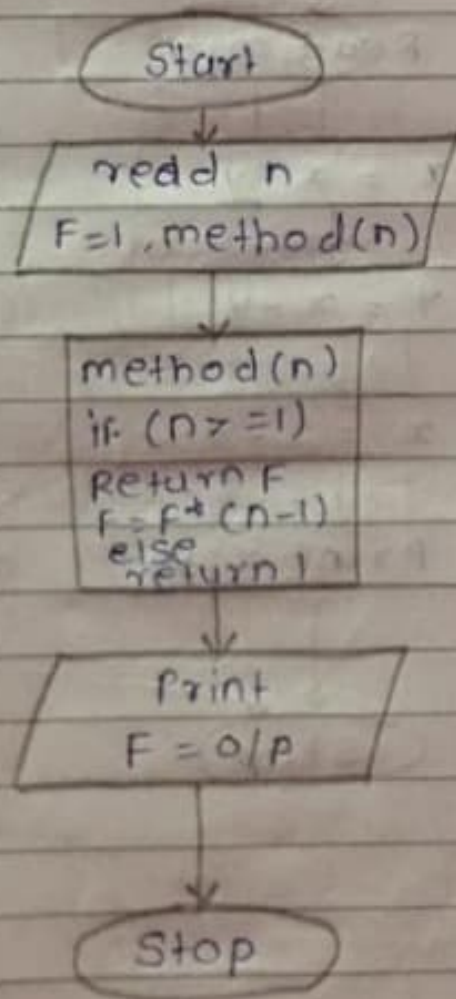 Start
read n
F=1, method(n)
method(n)
if (n>=1)
Return F
F=F*(n-1)
else
return 1
Print
F=O/P
Stop